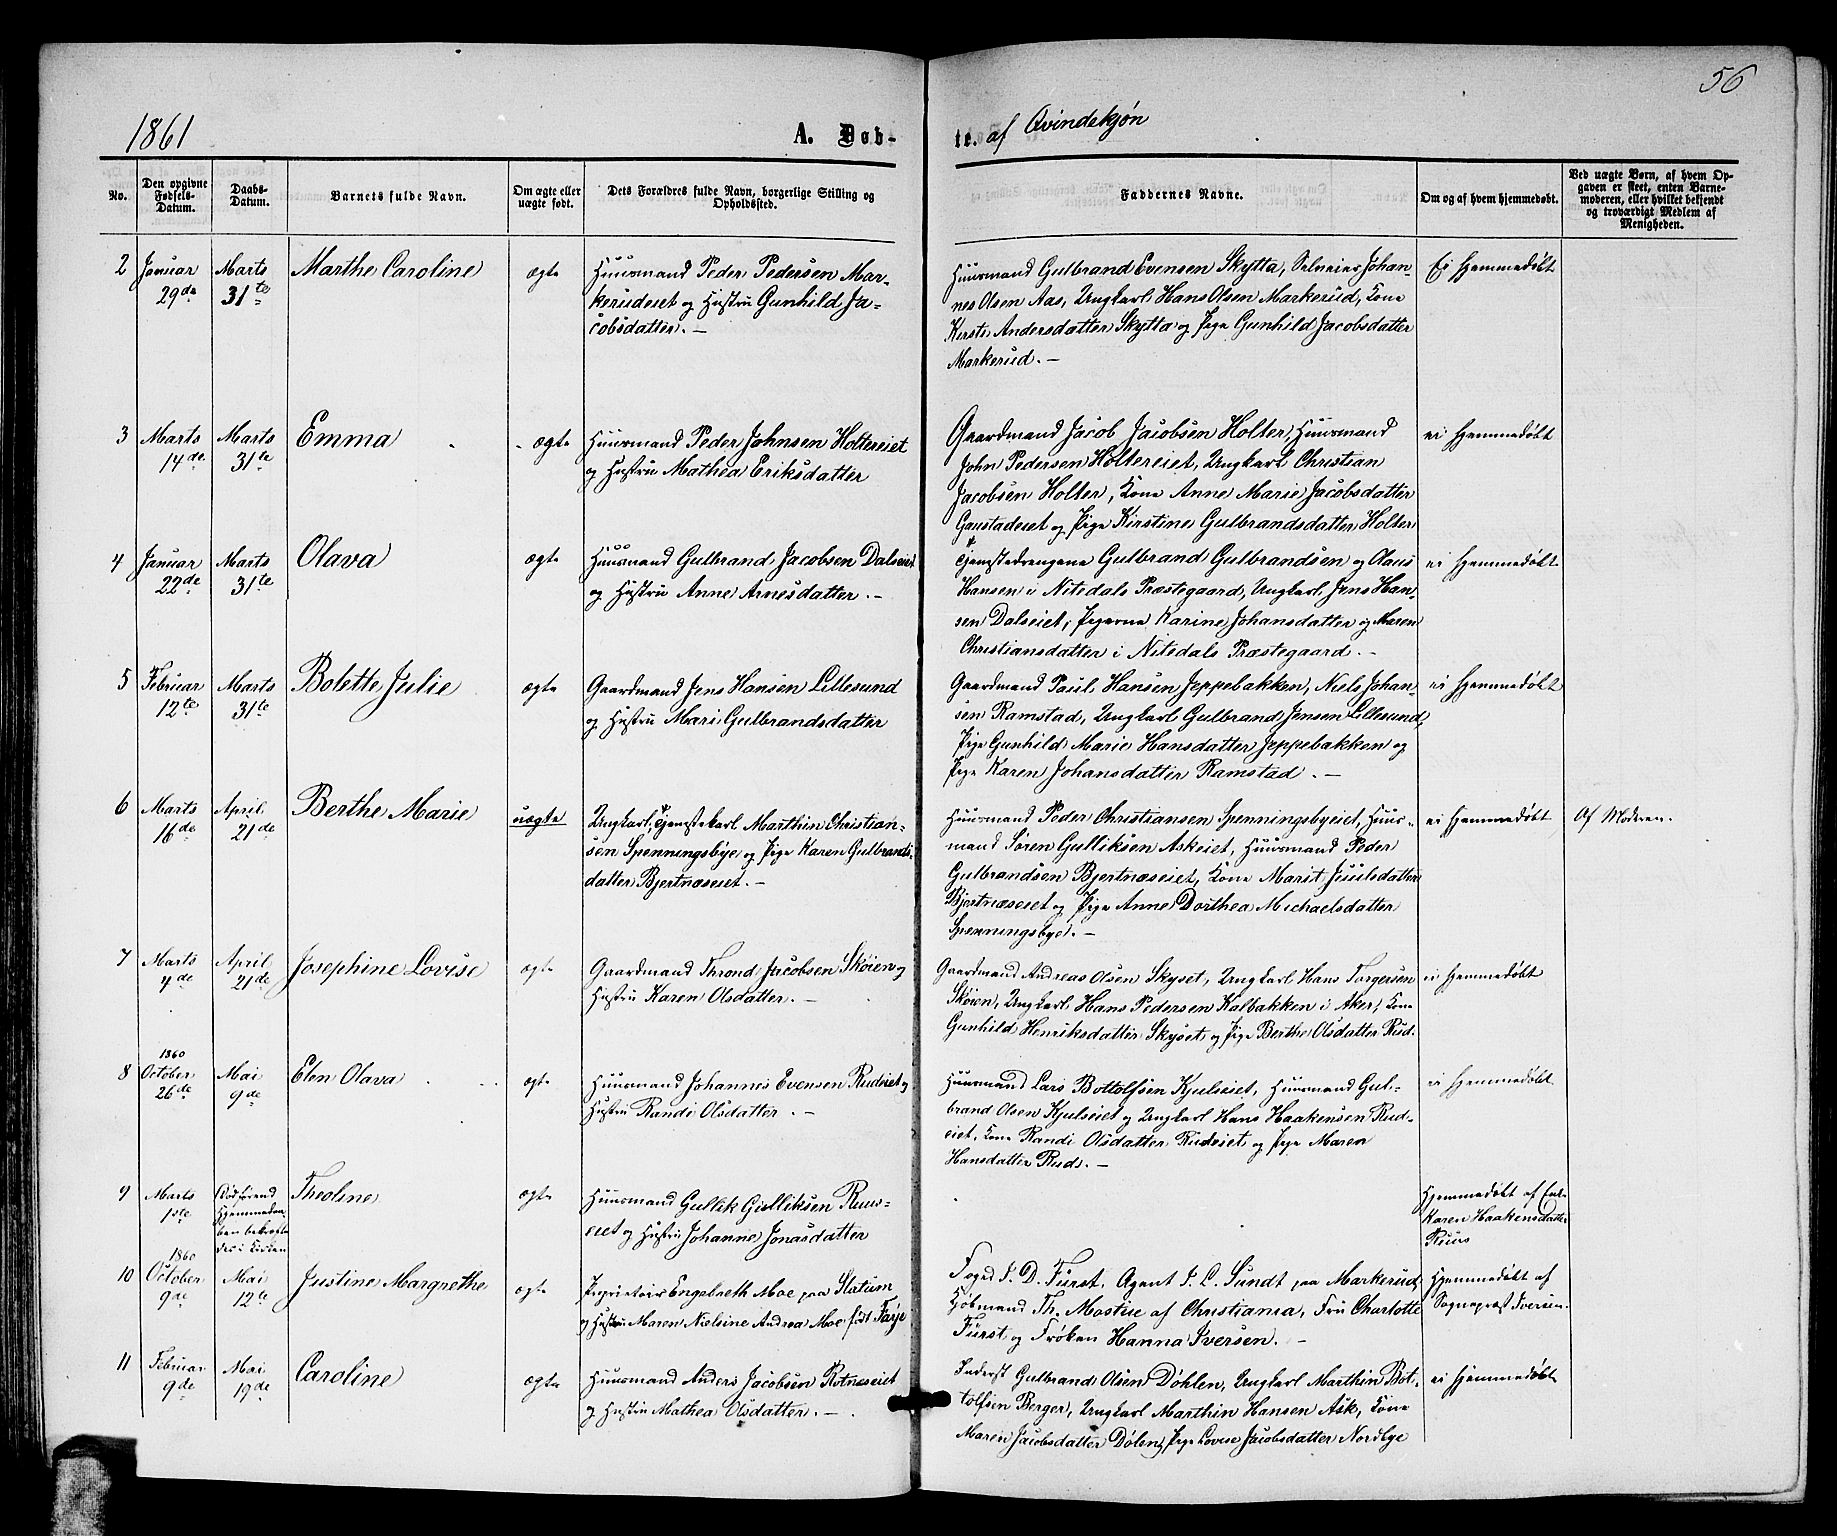 56
1861 A. Døb- te. af Qvindekjøn
No.
Den opgivne Fødsels-Datum.
Daabs-Datum.
Barnets fulde Navn.
Om ægte eller uægte født.
Dets Forældres fulde Navn, borgerlige Stilling og Opholdssted.
Faddernes Navne.
Om og af hvem hjemmedøbt.
Ved uægte Børn, af hvem Opgaven er skeet, enten Barnemoderen, eller hvilket bekjendt og troværdigt Medlem af Menigheden.
2 Januar 29de
Marts 31te
Marthe Caroline
ægte
Huusmand Peder Pedersen Mar-
kerudeiet og Hustru Gunhild Ja-
cobsdatter. —
Huusmand Gulbrand Evensen Skytta, Selveier Johan-
nes Olsen Aas, Ungkarl Hans Olsen Markerud, Kone
Kirsti Andersdatter Skytta og Pige Gunhild Jacobsdatter
Markerud. —
Ei hjemmedøbt
3 Marts 14de
Marts 31te
Emma
ægte
Huusmand Peder Johnsen Holtereiet
og Hustru Mathea Eriksdatter
Gaardmand Jacob Jacobsen Holter, Huusmand
John Pedersen Holtereiet, Ungkarl Christian
Jacobsen Holter, Kone Anne Marie Jacobsdatter
Gaustadeiet og Pige Kirstine Gulbrandsdatter Holter
ei hjemmedøbt
4 Januar 22de
Marts 31te
Olava
ægte
Huusmand Gulbrand Jacobsen Dalseiet
og Hustru Anne Arnesdatter. —
Tjenestedrengene Gulbrand Gulbrandsen og Olaus
Hansen i Nitedals Præstegaard, Ungkarl Jens Han-
sen Dalseiet, Pigerne Karine Johansdatter og Maren
Christiansdatter i Nitedals Præstegaard. —
ei hjemmedøbt
5 Februar 12te
Marts 31te
Bolette Julie
ægte
Gaardmand Jens Hansen Lillesund
og Hustru Mari Gulbrandsdatter
Gaardmand Paul Hansen Jeppebakken, Niels Johan-
sen Ramstad, Ungkarl Gulbrand Jensen Lillesund,
Pige Gunhild Marie Hansdatter Jeppebakken og
Pige Karen Johansdatter Ramstad. —
ei hjemmedøbt
6 Marts 16de
April 21de
Berthe Marie
uægte
Ungkarl, Tjenestekarl Marthin Christian-
sen Spenningsbye og Pige Karen Gulbrands-
datter Bjertnæseiet. —
Huusmand Peder Christiansen Spenningsbyeiet, Huus-
mand Søren Gulliksen Askeiet, Huusmand Peder
Gulbrandsen Bjertnæseiet, Kone Marit Juulsdatter
Bjertnæseiet og Pige Anne Dorthea Michaelsdatter
Spenningsbye. —
ei hjemmedøbt
Af Moderen.
7 Marts 4de
April 21de
Josephine Lovise
ægte
Gaardmand Thrond Jacobsen Skøien og
Hustru Karen Olsdatter. —
Gaardmand Andreas Olsen Skyset, Ungkarl Hans Torgersen
Skøien, Ungkarl Hans Pedersen Kalbakken i Aker, Kone
Gunhild Henriksdatter Skyset og Pige Berthe Olsdatter Rud.
ei hjemmedøbt
8 1860 October 26de
Mai 9de
Elen Olava
ægte
Huusmand Johannes Evensen Rudeiet og
Hustru Randi Olsdatter. —
Huusmand Lars Bottolfsen Kjulseiet, Huusmand Gul-
brand Olsen Kjulseiet og Ungkarl Hans Haakensen Rud-
eiet, Kone Randi Olsdatter Rudeiet og Pige Maren
Hansdatter Rud. —
ei hjemmedøbt
9 Marts 1ste
Død førend
Hjemmedaa-
ben bekræfte-
des i Kirken
Theoline
ægte
Huusmand Gullik Gulliksen Ruus-
eiet og Hustru Johanne Jonasdatter
Hjemmedøbt af Enke
Karen Haakensdatter
Ruus
10 1860 October 9de
Mai 12te
Justine Margrethe
ægte
Proprietair Engebreth Moe paa Slatum
og Hustru Maren Nielsine Andrea Moe født Farje
Foged J. D. Fürst, Agent J. L. Sundt paa Markerud,
Kjøbmand Th. Mostue af Christiania, Fru Charlotte
Fürst og Frøken Hanna Iversen. —
Hjemmedøbt af
Sognepræst Iversen.
11 Februar 9de
Mai 19de
Caroline
ægte
Huusmand Anders Jacobsen Rotneseiet
og Hustru Mathea Olsdatter. —
Inderst Gulbrand Olsen Døhlen, Ungkarl Marthin Bot-
tolfsen Berger, Ungkarl Marthin Hansen Ask, Kone
Maren Jacobsdatter Dølen, Pige Lovise Jacobsdatter Nordbye
ei hjemmedøbt